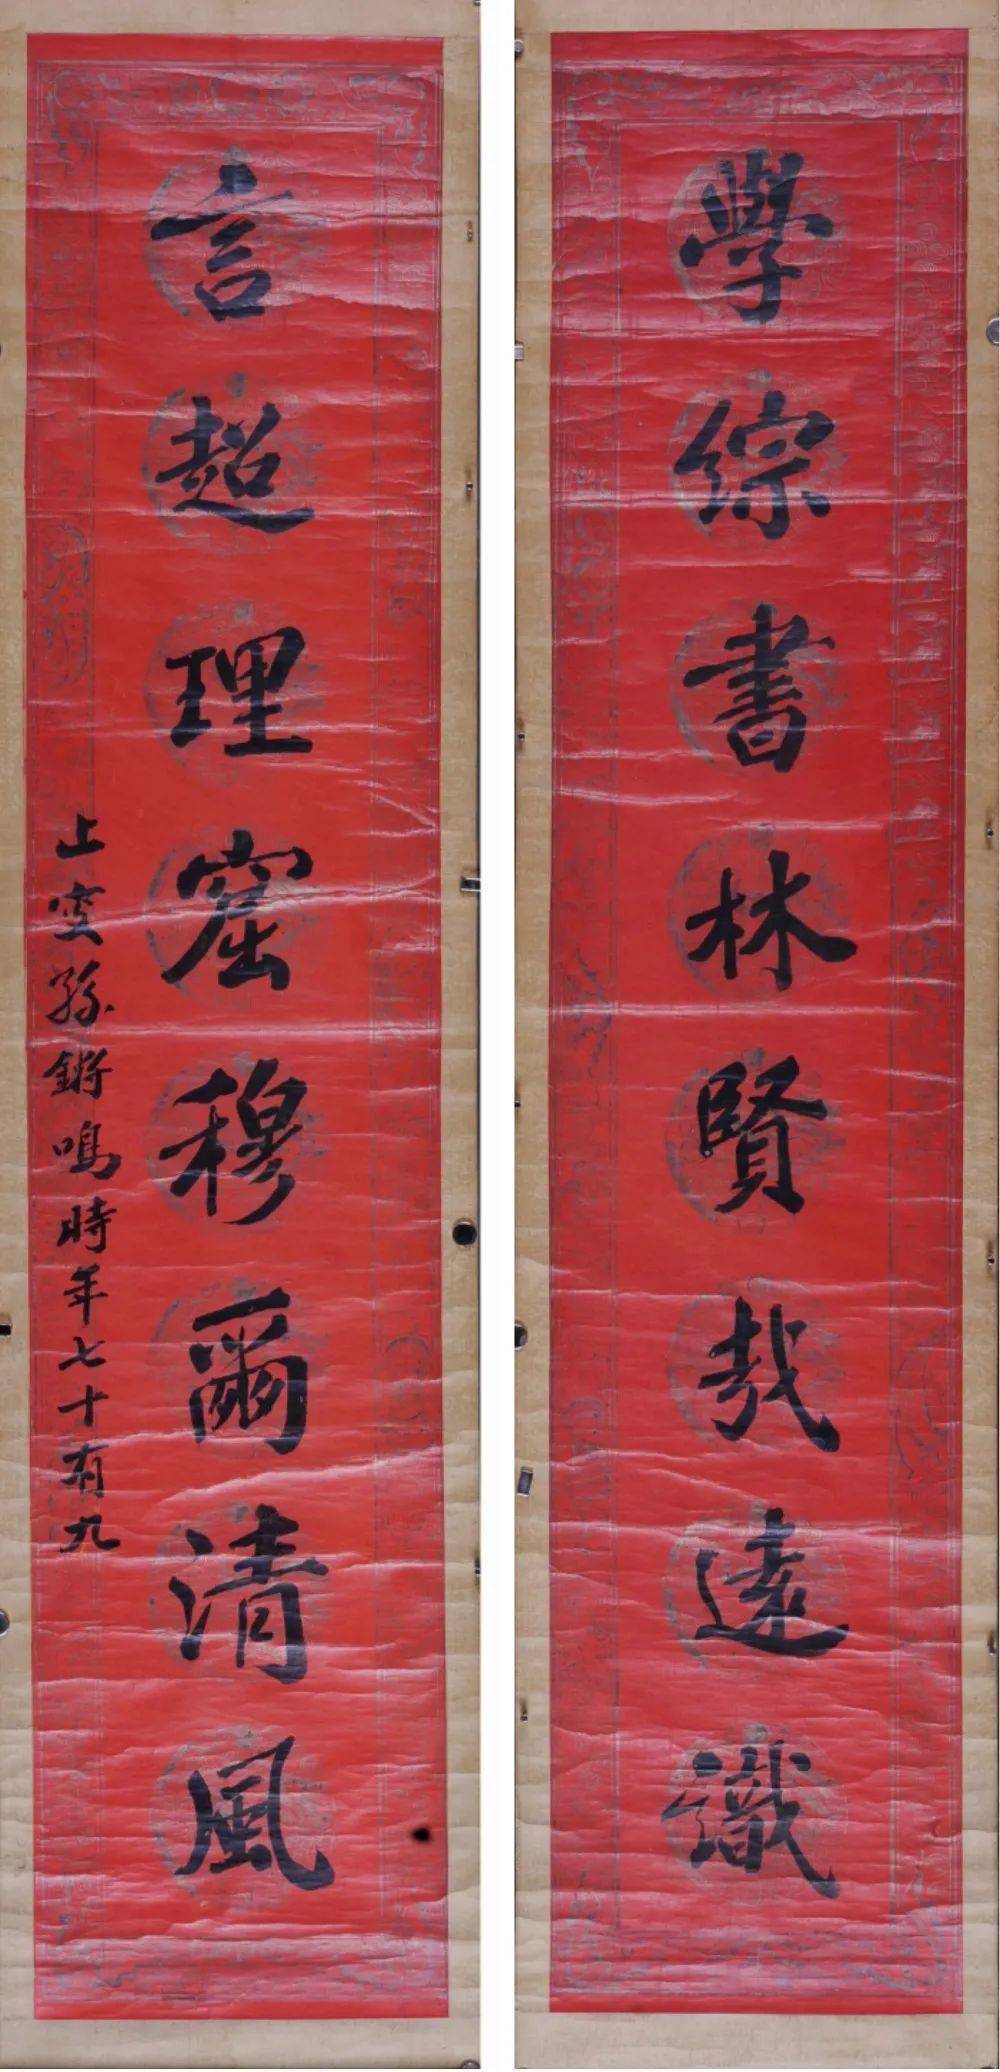 學綜書林賢哉遠識
言超理窟穆爾清風
止叟孫鏘鳴時年七十有九